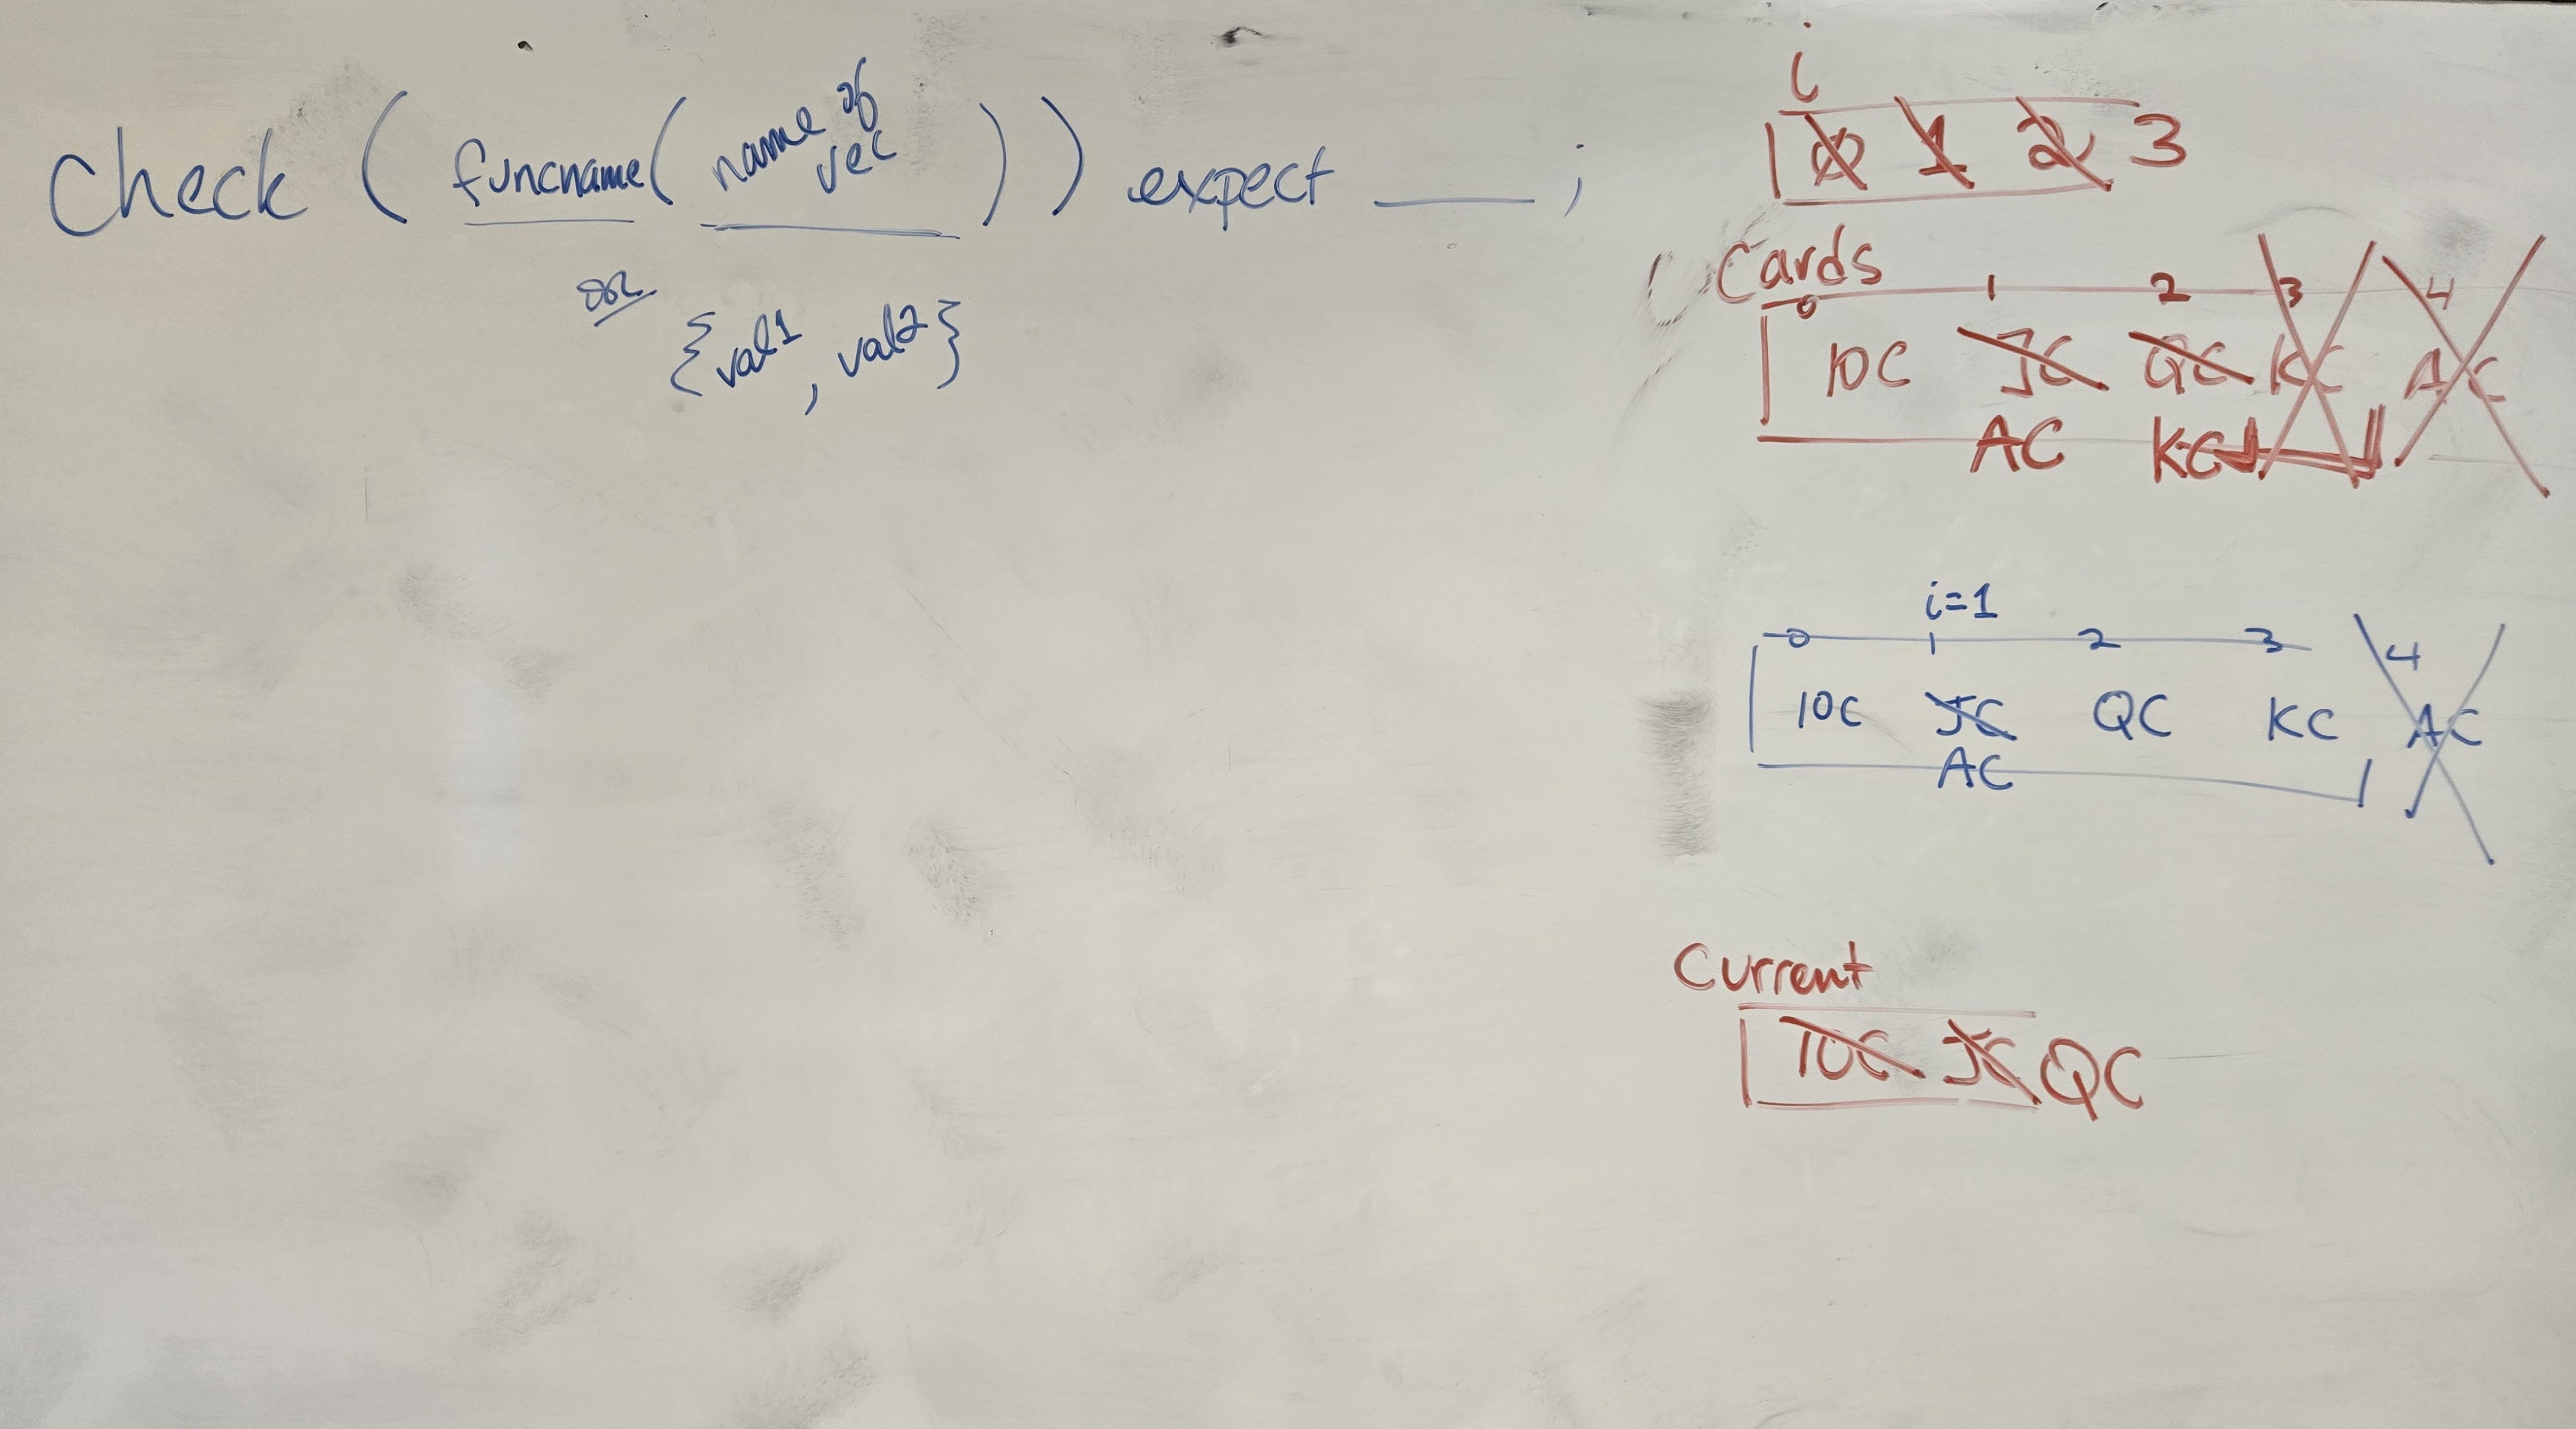 Check ( funcname( name of vec ) ) expect ___ ;
or
{val1, val2}
i
0 1 2 3
Cards
0 1 2 3 4
10C JC QC KC AC
AC KC
i=1
0 1 2 3 4
10C JC QC KC AC
AC
Current
10C JC QC